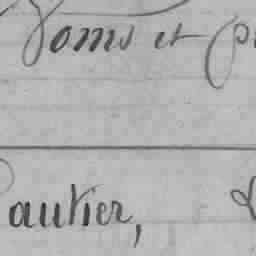 Noms et
Gautier,